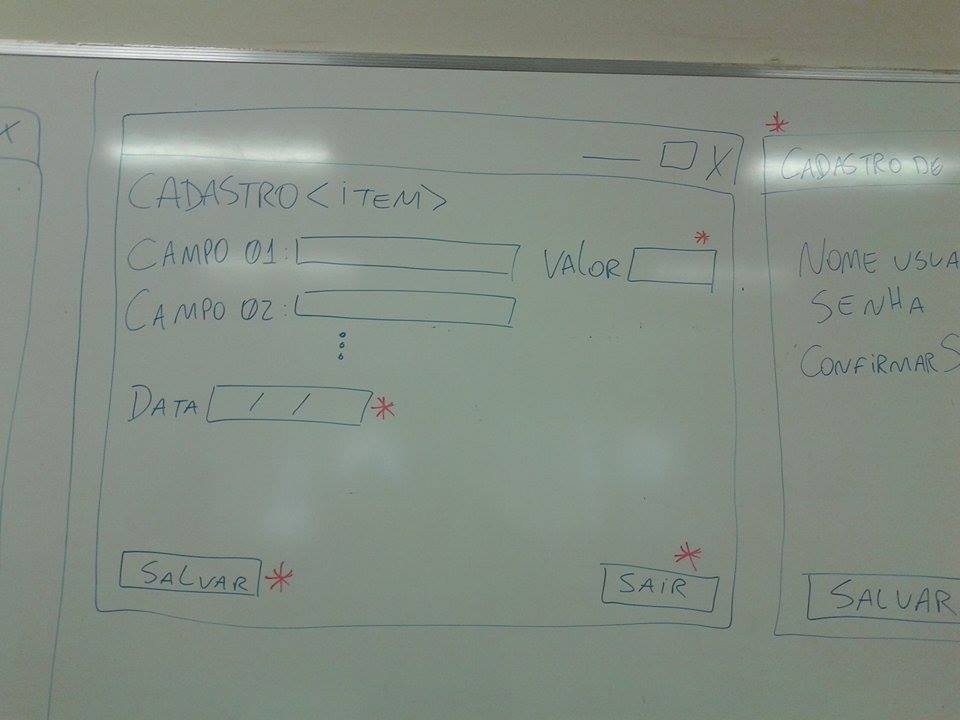 X
— □ X
CADASTRO <ITEM>
CAMPO 01:
VALOR *
CAMPO 02:
DATA / / *
SALVAR *
SAIR *
*
CADASTRO DE
NOME USUA
SENHA
CONFIRMAR S
SALVAR